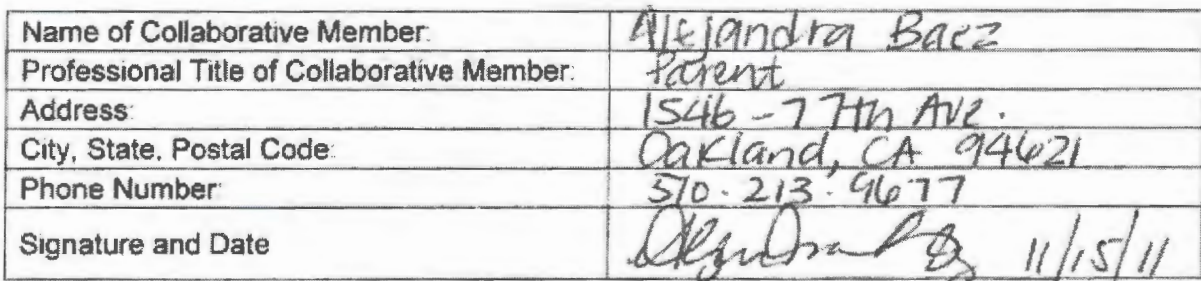 Name of Collaborative Member: Alejandra Baez
Professional Title of Collaborative Member: Parent
Address: 1546-77th Ave.
City, State, Postal Code: Oakland, CA 94621
Phone Number: 510.213.9677
Signature and Date 11/15/11